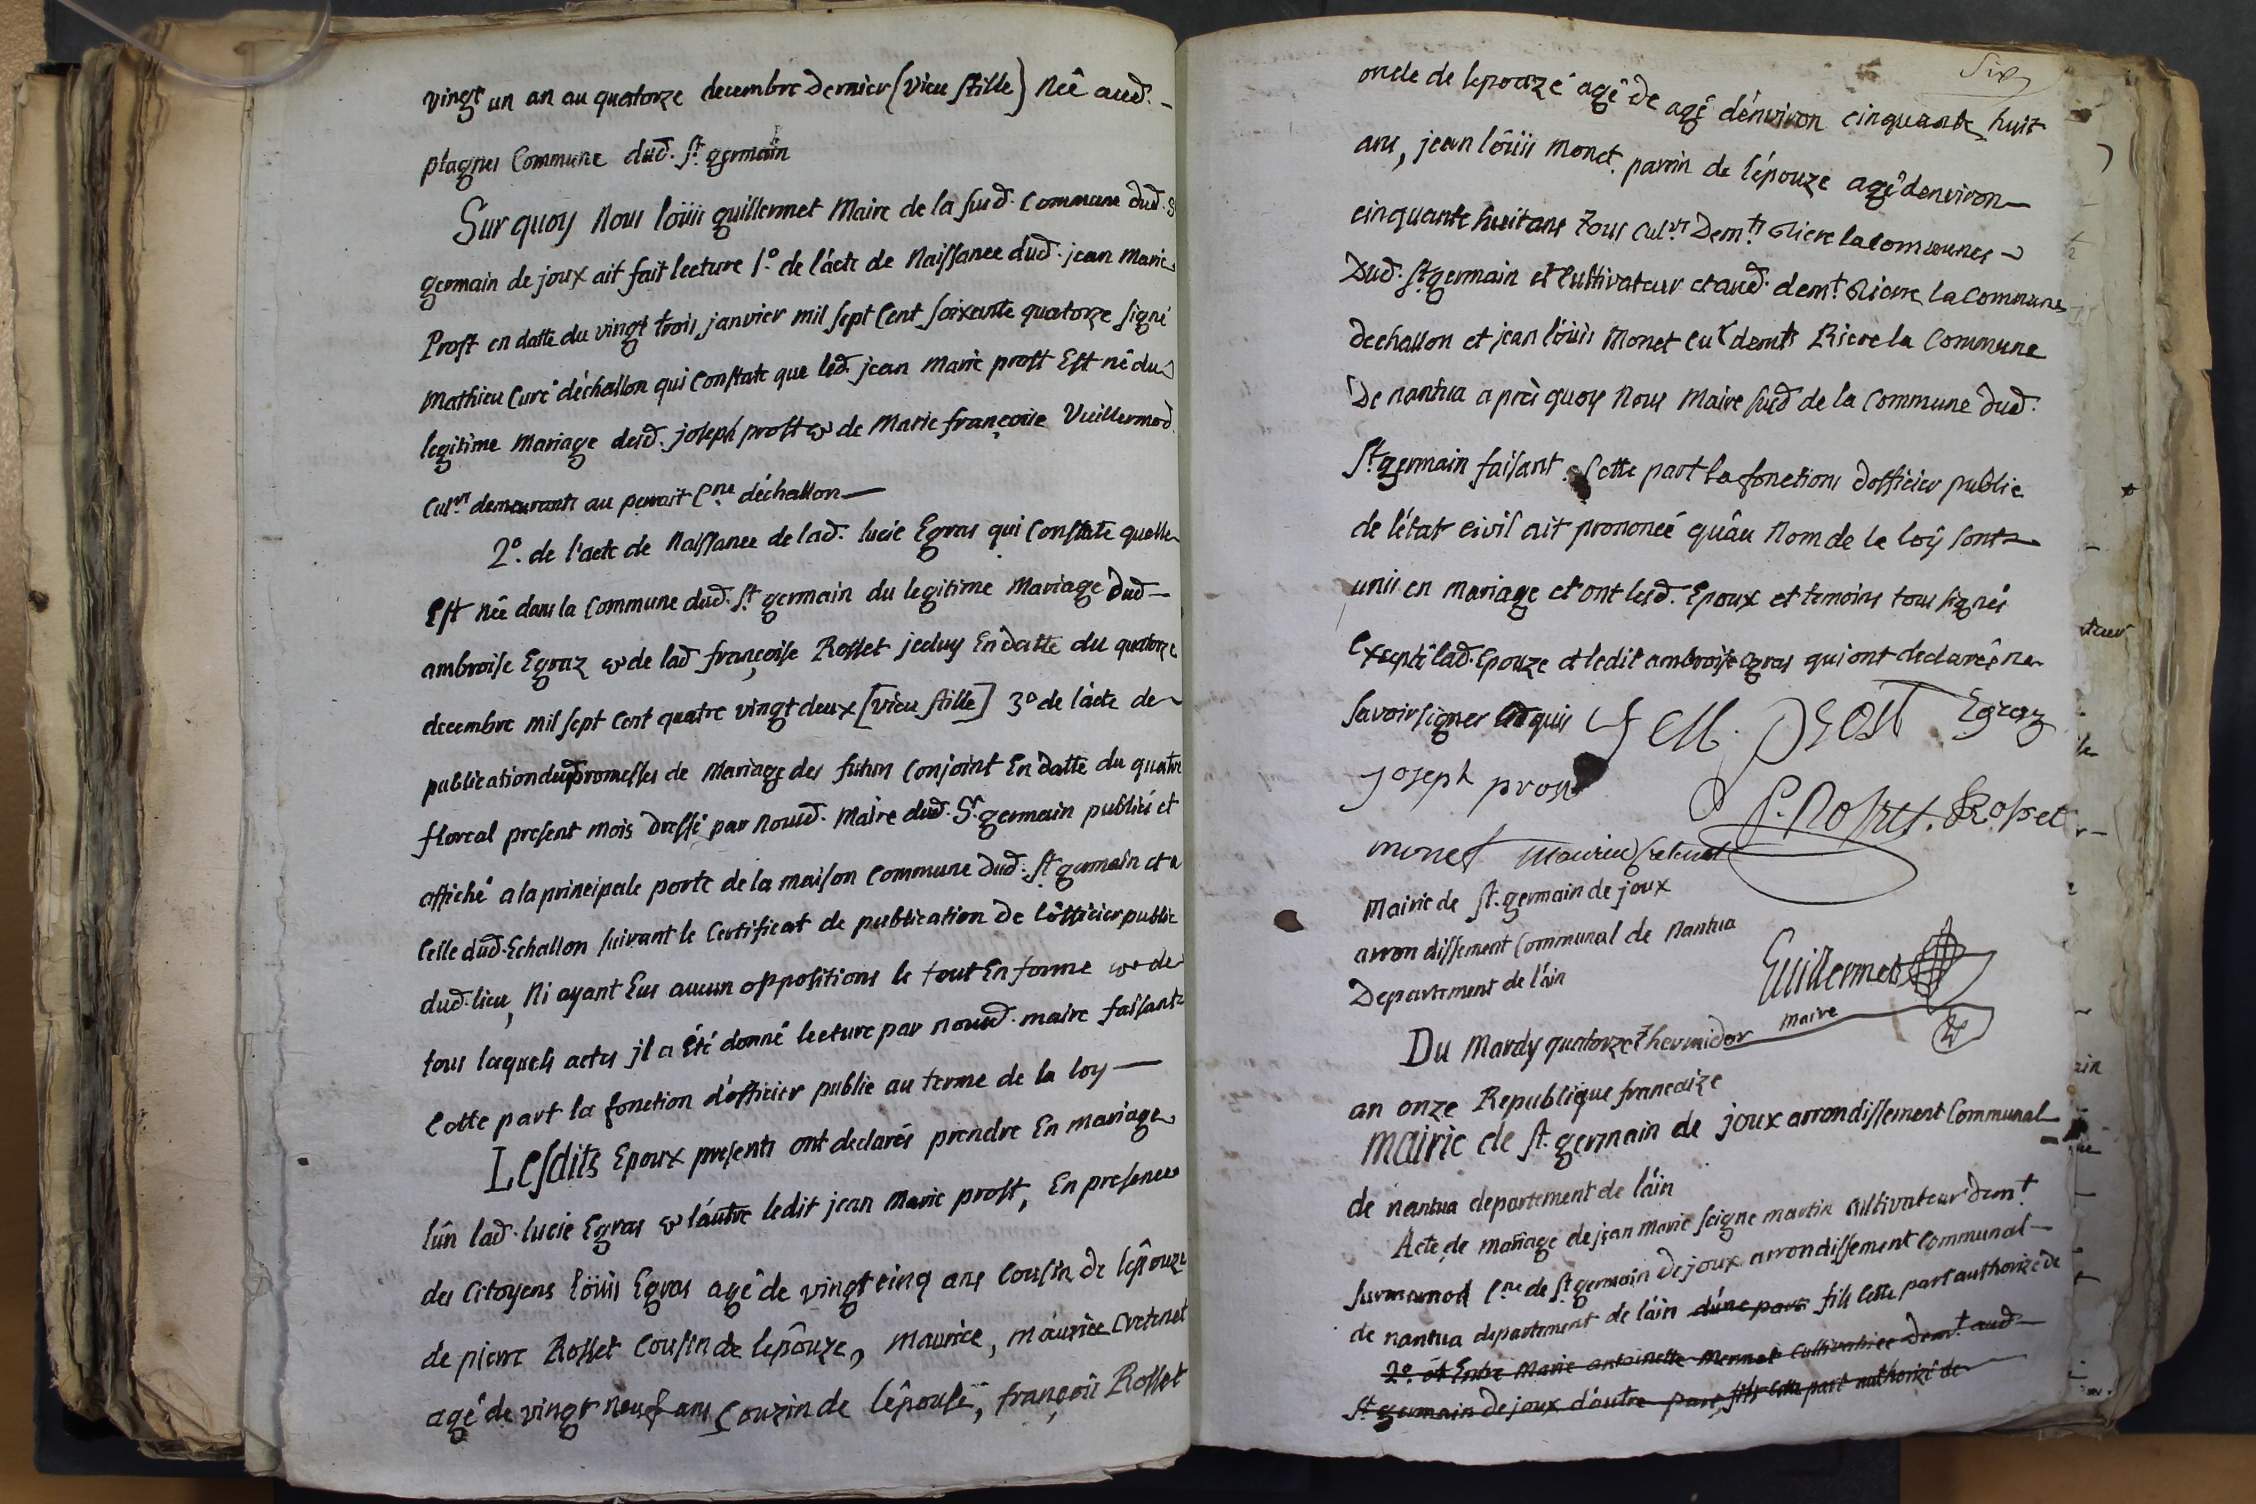 vingt un an au quatorze decembre dernier (vieu stille) Néê aud.
plagnes Commune dud. St germain
Sur quoy Nous loüis guillermet Maire de la sud. Commune dud. S
germain de joux ait fait lecture 1.o de l'acte de Naissance dud. jean Marie
Prost en datte du vingt trois janvier mil sept Cent soixente quatorze signé
Mathieu Curé déchallon qui Constate que led. jean Marie prost Est né du
legitime Mariage desd. joseph prost & de Marie françoise Vuillermod
Culrs demeurants au perrait Cne déchallon
2o. de l'acte de Naissance de lad. lucie Egras qui Constate quelle
Est née dans la Commune dud. St germain du legitime Mariage dud
ambroise Egraz & de lad françoise Rosset jceluy En datte du quatorze
decembre mil sept Cent quatre vingt deux [vieu stille] 3o de lácte de
publication dud promesses de Mariage des futurs Conjoint En datte du quatre
floreal present mois dressé par Nousd. Maire dud. St germain publiés et
affiché a la principale porte de la maison Commune dud. St germain et a
Celle dud. Echallon suivant le Certificat de publication de l'officier public
dud. lieu, Ni ayant Eus aucun oppositions le tout En forme & de
tous laquels actes jl a été donné lecture par nousd. maire faisant
Cotte part la fonction d'officier public au terme de la loy
Lesdits Epoux presents ont declarés prendre En mariage
lûn lad. lucie Egras & láutre ledit jean Marie prost, En presence
des Citoyens loüis Egras agé de vingt cinq ans Cousin de lépouze
de pierre Rosset Cousin de lepôuze, Maurice, maurice Cretenet
agé de vingt neuf ans Couzin de lêpouse, françois Rosset
Six
oncle de lepouzé agê de agé d'environ cinquante huit
ans, jean loüis monet parrin de l'épouze agé denviron
cinquante huit ans Tous Culrs Demts Riere la Communes
Dud. St germain et Cultivateur et aud. demt Riere la Commune
dechallon et jean loüis Monet Cur demts Riere la Commune
De nantua après quoy Nous Maire sud de la Commune dud.
St germain faisant Cette part la fonctions dofficier public
de létat civil ait prononcé quâu Nom de le loy sont
unis en mariage et ont lesd. Epoux et temoins tous signés
Exsepté lad. Epouze et ledit ambroise Egras qui ont declarés ne
savoir signer quis j M. prost Egraz
joseph prost
P. Rosset. F Rosset
monet maurice Cretenet
Mairie de St. germain de joux
arrondissement Communal de Nantua
Departement de láin
Guillermet
maire
Du Mardy quatorze Thermidor
an onze Republique francaize
Mairie de St. germain de joux arrondissement Communal
de nantua departement de láin
Acte de mariage de jean marie seigne martin Cultivateur demt
surmunod Cne de St germain de joux arrondissement Communal
de nantua departement de láin dúne part fils Cette part authorizé de
2o. et Entre Marie antoinette Mermet Cultivatrice Demt aud
St germain de joux dáutre part, fils Cette part authorizé de